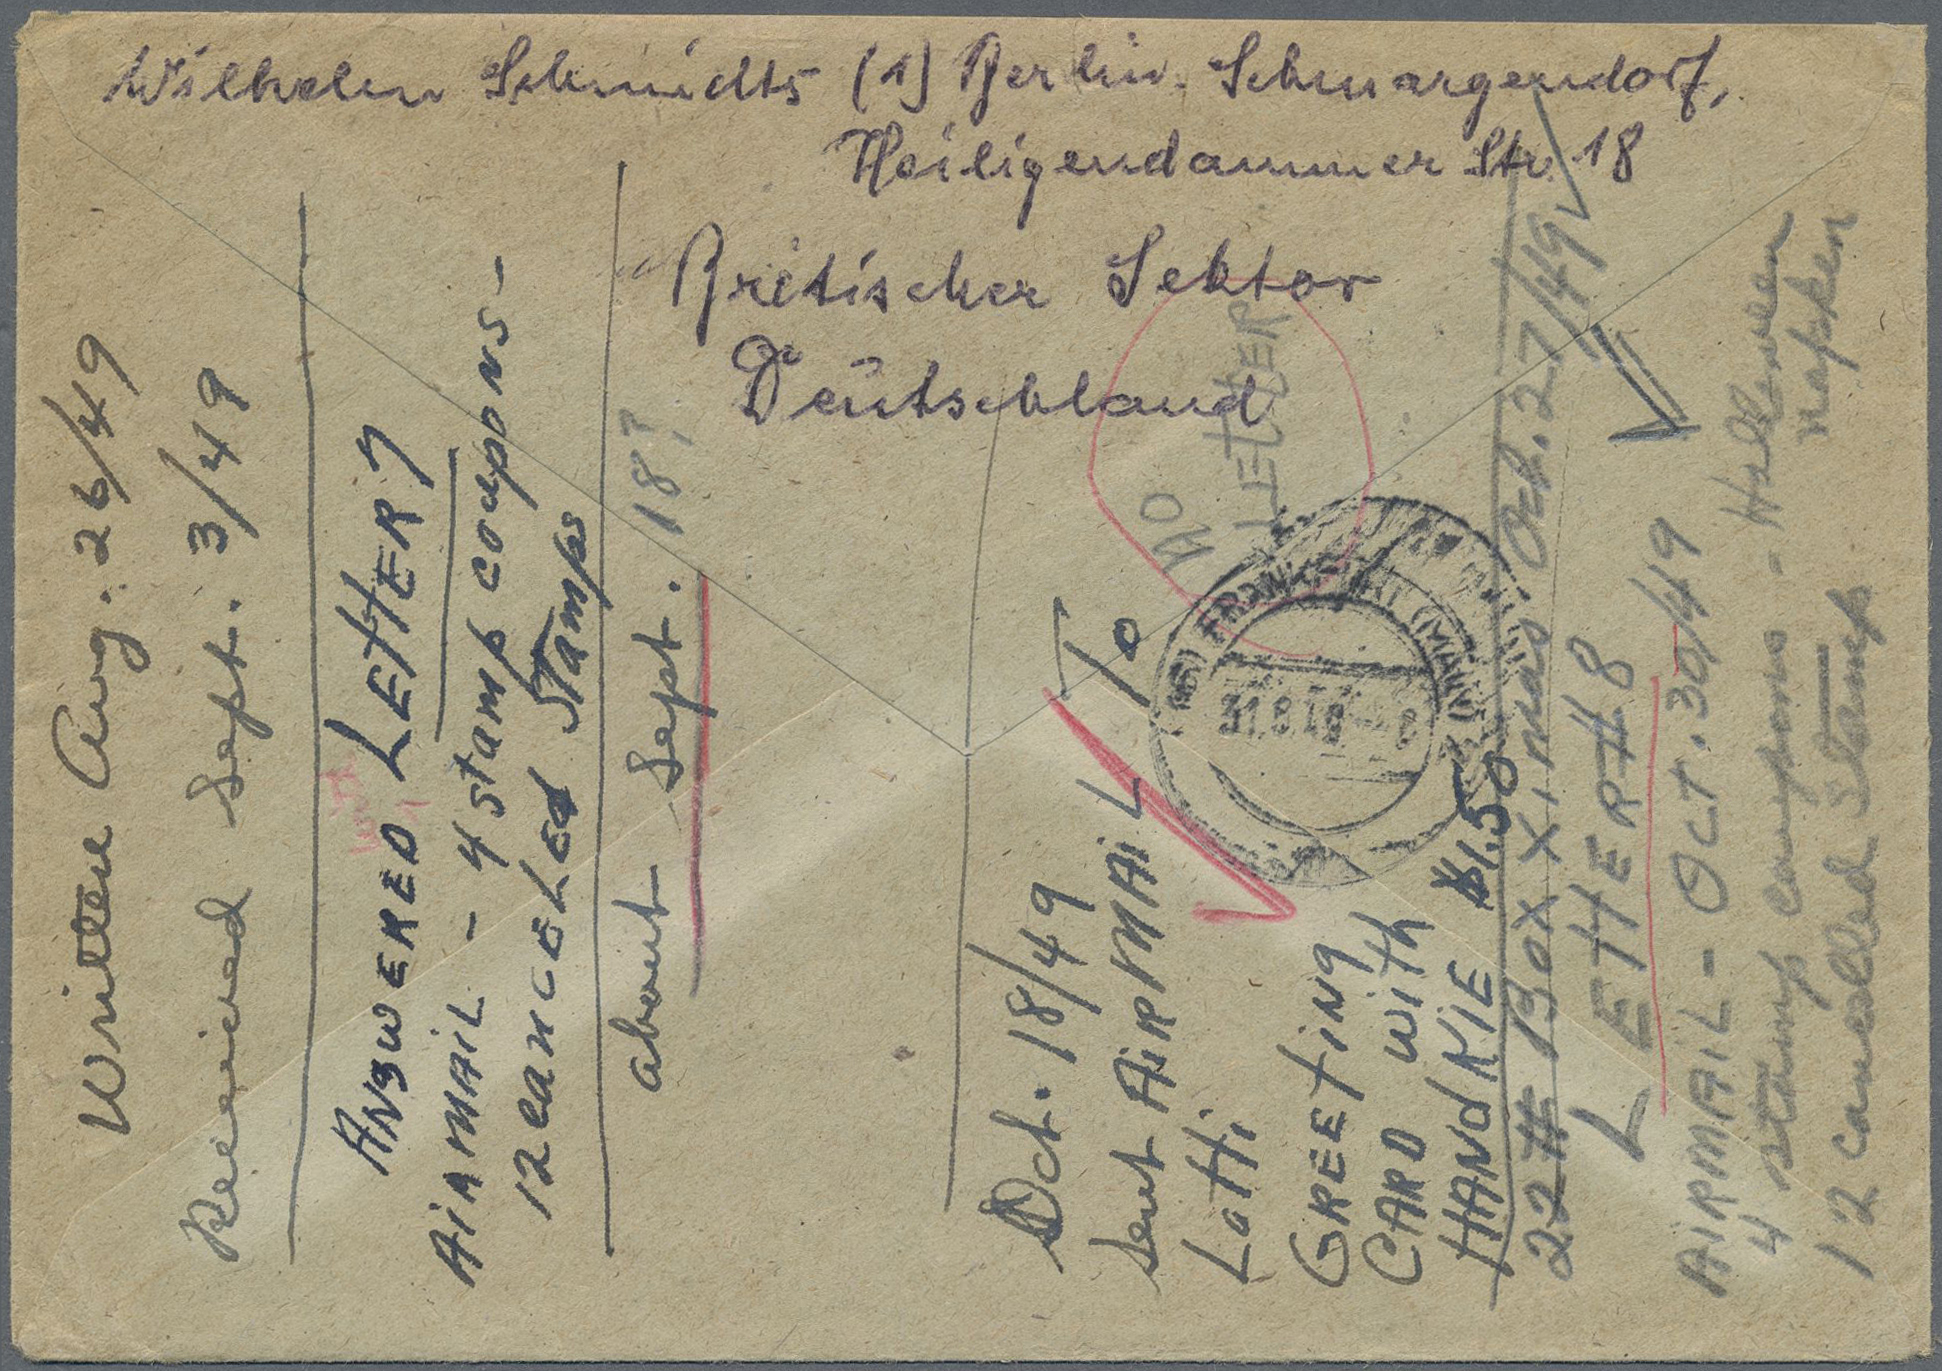 Wilhelm Schmidts (1) Berlin. Schmargendorf,
Heiligendammer Str. 18
Britischer Sektor
Deutschland
Written Aug. 26/49
Received Sept. 3/49
ANSWERED LETTER 7
AIRMAIL - 4 stamp coupons -
12 CANCELED Stamps
about Sept. 18?
NO
LETTER
Oct. 18/49
sent AIRMAIL To
LottI
GREETING
CARD with
HANDKIE $1.50
22# BOX X,mas Oct. 27/49
LETTER #8
AIRMAIL - OCT. 30/49
4 stamp coupons - Halloween napken
12 cancelled Stamps
FRANKFURT (MAIN)
31.8.49